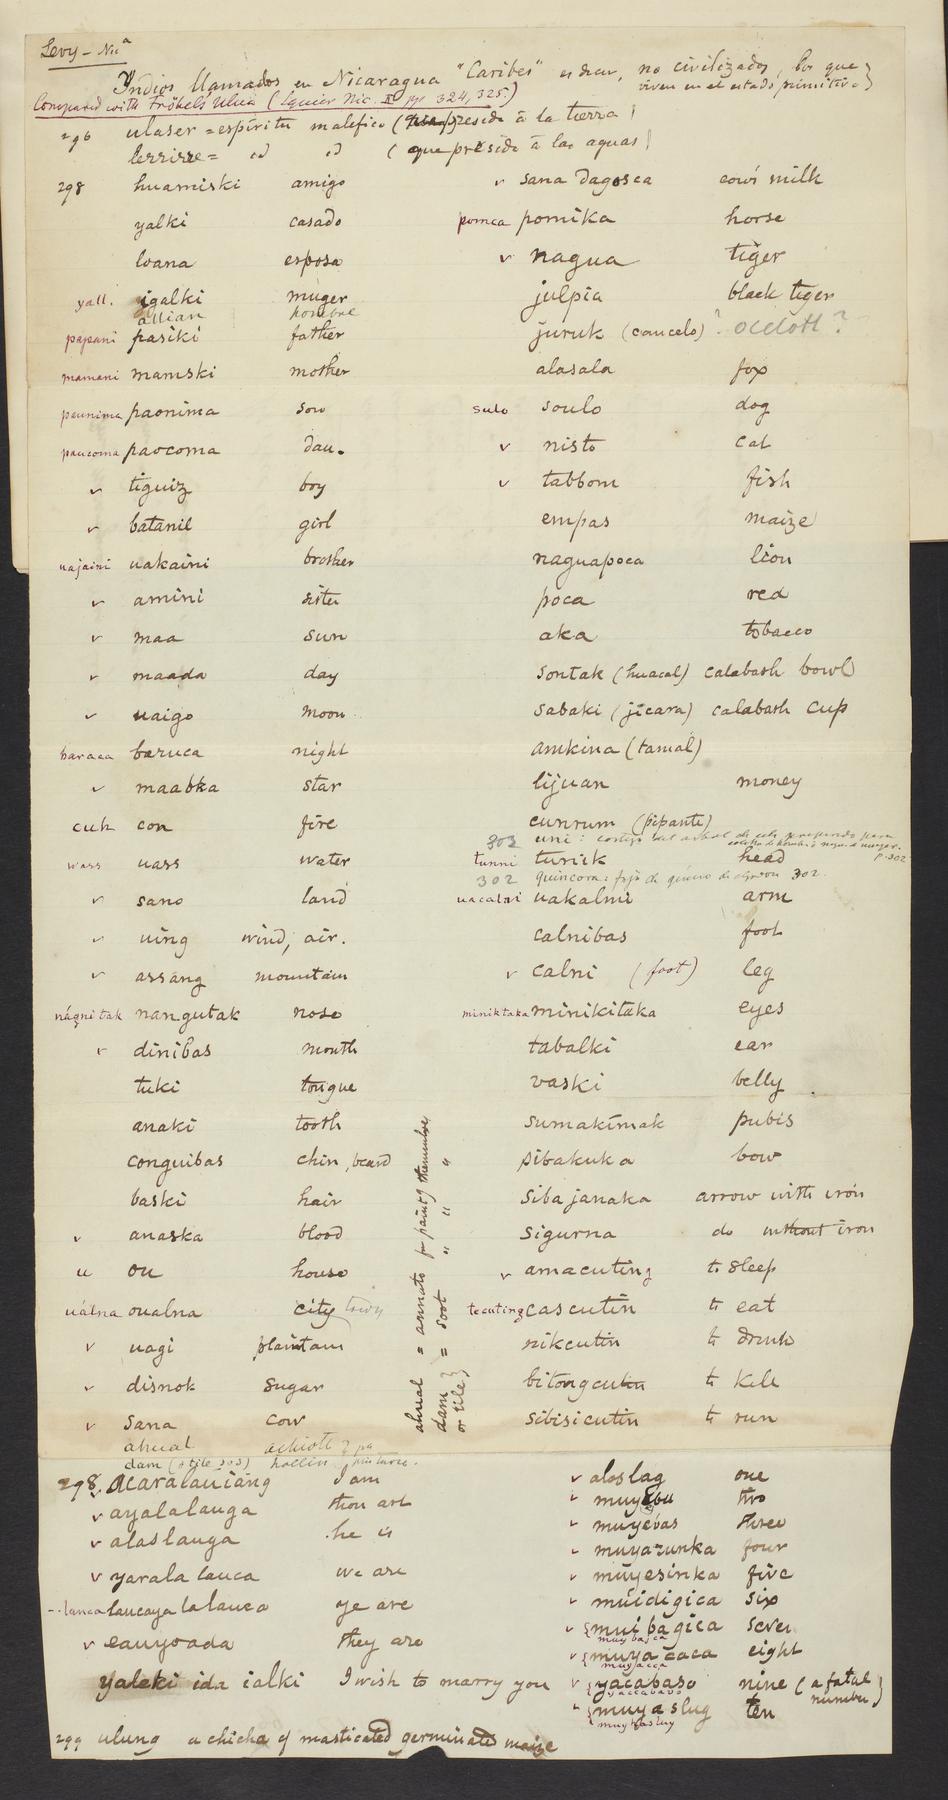 Levy – Nicª
Indios llamados en Nicaragua "Caribes" es decir, no civilizados, los que
viven en el estado primitivo}
Compared with Fröbel's Ulua (Squier Nic. II pp 324, 325)
296 ulaser = espíritu malefico (que preside à la tierra)
lerrirre = id id (que preside à las aguas)
298 huamiski amigo
yalki casado
loana esposa
yall. igalki muger
allian hombre
papani pasiki father
mamani mamski mother
paunima paonima son
paucoma paocoma dau.
v tiguiz boy
v batanil girl
uajaini uakaini brother
v amini sister
v maa sun
v maada day
v uaigo moon
baraca baruca night
v maabka star
cuh con fire
wass uass water
v sano land
v uing wind, air.
v assang mountain
nágnitak nangutak nose
v dinibas mouth
tuki tongue
anaki tooth
conguibas chin, beard
baski hair
v anaska blood
u ou house
uálna oualna city town
v uagi plaintain
v disnok sugar
v sana cow
ahual achiott
dam (o tile 303) hollin
ahual = annato for paing themselves
dam } = soot " " "
or tile }
v sana dagosca cow's milk
pomca pomika horse
v nagua tiger
julpia black tiger
juruk (caucelo) ? ocelott ?
alasala fox
sulo soulo dog
v nisto cat
v tabbom fish
empas maize
naguapoca lion
poca red
aka tobacco
sontak (huacal) calabash bowl
sabaki (jícara) calabash cup
amkina (tamal)
lijuan money
cunrum (pipante)
303 uni : corteza del arbol de ule preparado para
p. 302
tunni turick head
302 quincora : faja de genero de algodon 302.
uacalni uakalmi arm
calnibas foot
v calni (foot) leg
miniktaka minikitaka eyes
tabalki ear
vaski belly
sumakimak pubis
sibakuka bow
siba janaka arrow with iron
sigurna do without iron
v amacuting to sleep
tecuting cascutin to eat
nikcutin to drink
bitongcutin to kill
sibisicutin to run
298. acaralauiang I am
v ayalalauga thou art
v alaslauga he is
v yarala lauca we are
--lanca laucaya lalauca ye are
v eauyoada they are
yaleki ida ialki I wish to marry you
v aloslag one
v muyebu two
v muyebas three
v muyarunka four
v muyesinka five
v muidigica six
v {mui bagica seven
muy bajca
v {muya caca eight
muyacca
v {yacabaso nine (a fatal number)
yaccabavo
v {muyaslug ten
muyhasluy
299 ulung a chicha of masticated germinated maize